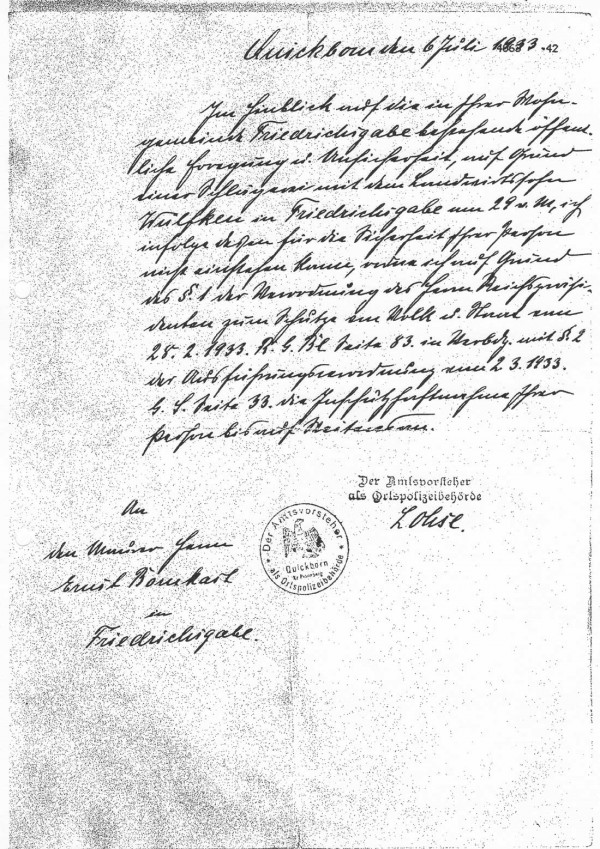 Quickborn den 6 Juli 1933.
4863 -42
Im Hinblick auf die in Ihrer Wohn-
gemeinde Friedrichsgabe bestehende öffent-
liche Erregung u. Unsicherheit, auf Grund
einer Schlägerei mit dem Landwirtssohn
Wülfken in Friedrichsgabe am 29 v. M, ich
infolge dessen für die Sicherheit Ihrer Person
nicht einstehen kann, ordne ich auf Grund
des §. 1 der Verordnung des Herrn Reichspräsi-
denten zum Schutze von Volk u. Staat vom
28. 2. 1933. R. G. Bl. Seite 83. in Verbdg. mit §. 2
der Ausführungsverordnung vom 2 3. 1933.
G. S. Seite 33. die Inschutzhaftnahme Ihrer
Person bis auf Weiteres an.
Der Amtsvorsteher
als Ortspolizeibehörde
Lohse.
Der Amtsvorsteher
als Ortspolizeibehörde
Quickborn
Kr. Pinneberg
An
den Maurer Herrn
Ernst
in
Friedrichsgabe.